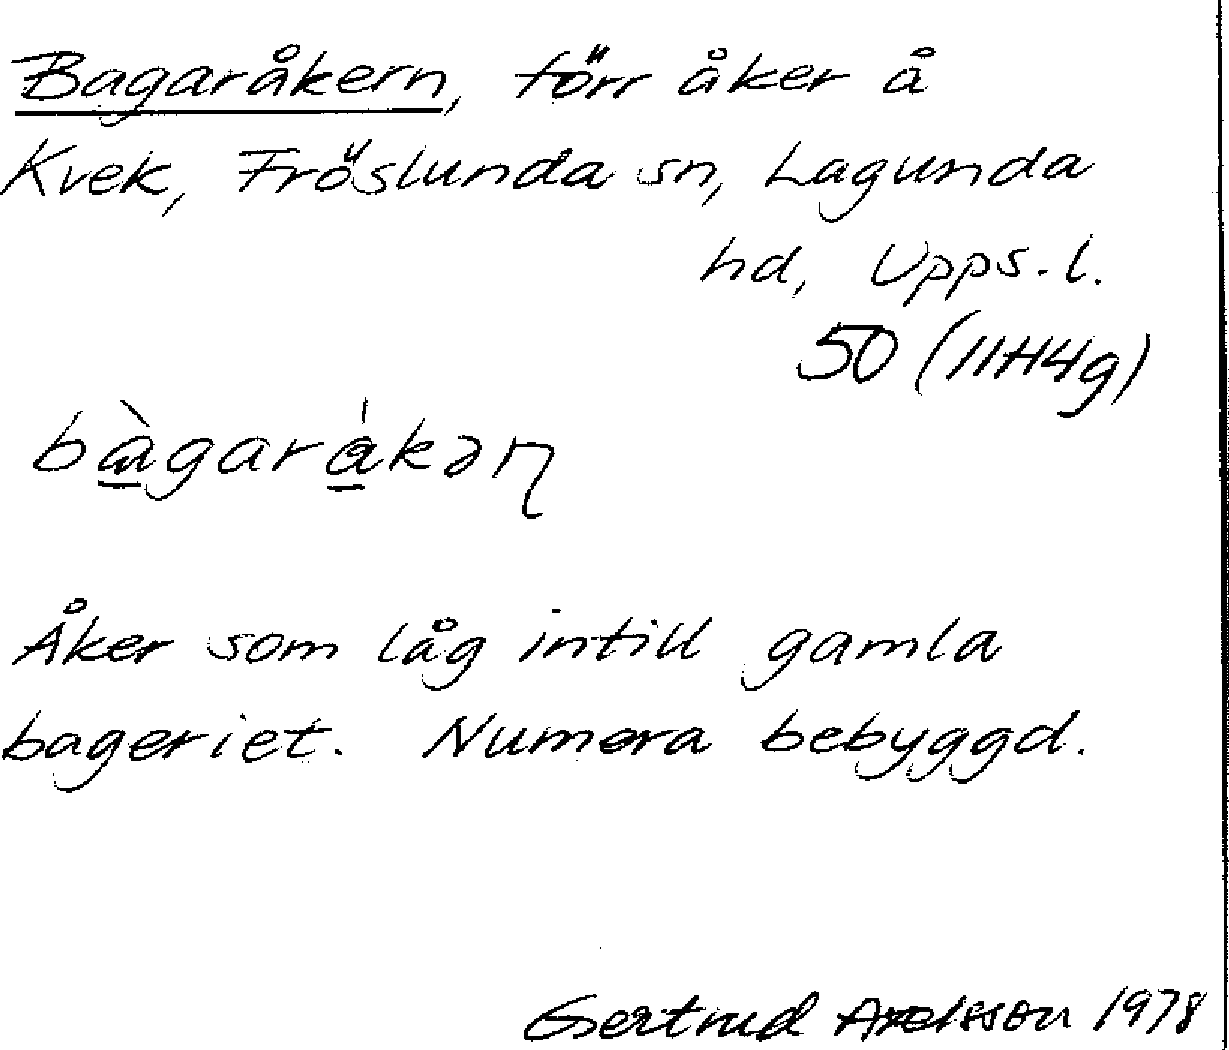 Bagaråkern, förr åker å
Kvek, Fröslunda sn, Lagunda
hd, Upps. l.
50 (11H4g)
Åker som låg intill gamla
bageriet. Numera bebyggd.
Gertrud Axelsson 1978